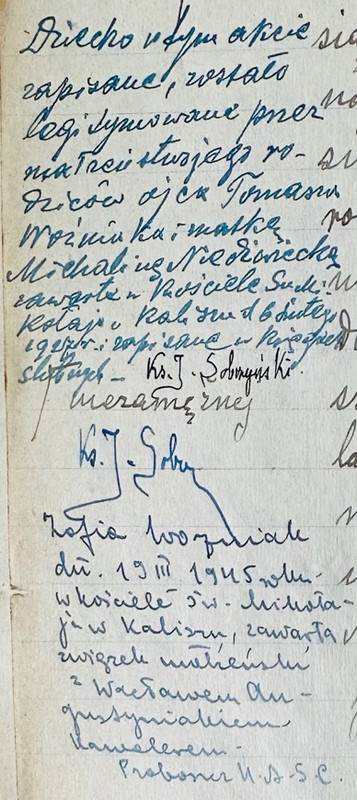 Dziecko w tym akcie
zapisane, zostało
legitymowane przez
małżeństwo jego ro-
dziców ojca Tomasza
Woźniaka i matkę
Michalinę Niedźwiecką
zawarte w Kościele Św. Mi-
kołaja w Kaliszu d. 6 lutego
i zapisane w księgach
ślubnych -
Ks. J. Sobczyński
niezamężnej
Ks. J. Sobcz
Zofia Woźniak
dn. 19 III 1945 roku
w kościele św. Mikoła-
ja w Kaliszu, zawarła
związek małżeński
z Wacławem Au-
gustyniakiem
kawalerem -
Proboszcz U.A.S.C.